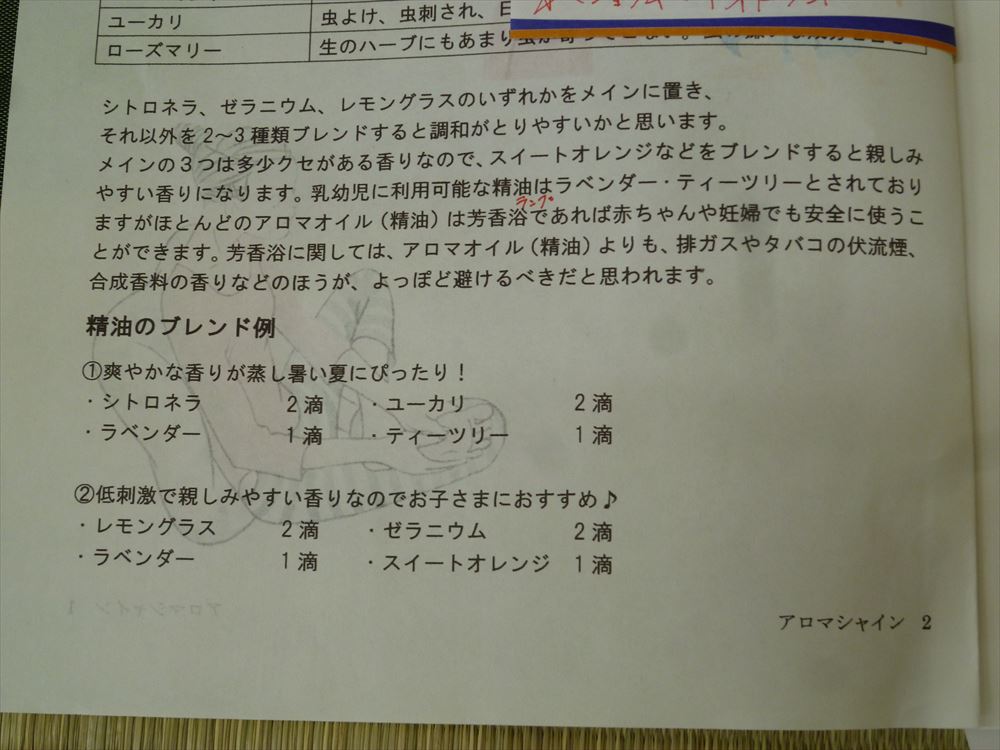 ユーカリ 虫よけ、虫刺され、
ローズマリー 生のハーブにもあまり
シトロネラ、ゼラニウム、レモングラスのいずれかをメインに置き、
それ以外を2～3種類ブレンドすると調和がとりやすいかと思います。
メインの3つは多少クセがある香りなので、スイートオレンジなどをブレンドすると親しみ
やすい香りになります。乳幼児に利用可能な精油はラベンダー・ティーツリーとされており
ランプ
ますがほとんどのアロマオイル(精油)は芳香浴であれば赤ちゃんや妊婦でも安全に使うこ
とができます。芳香浴に関しては、アロマオイル(精油)よりも、排ガスやタバコの伏流煙、
合成香料の香りなどのほうが、よっぽど避けるべきだと思われます。
精油のブレンド例
①爽やかな香りが蒸し暑い夏にぴったり！
・シトロネラ 2滴 ・ユーカリ 2滴
・ラベンダー 1滴 ・ティーツリー 1滴
②低刺激で親しみやすい香りなのでお子さまにおすすめ♪
・レモングラス 2滴 ・ゼラニウム 2滴
・ラベンダー 1滴 ・スイートオレンジ 1滴
アロマシャイン 2